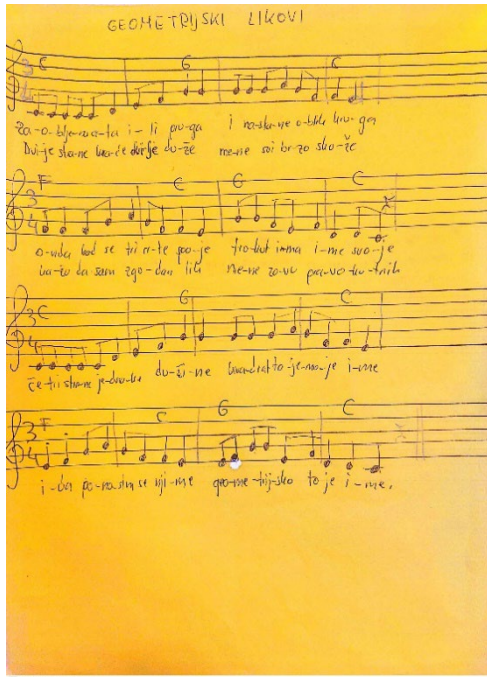 GEOMETRIJSKI LIKOVI
3 4 C G C
i na-sta-ne o-blik kru-ga
Dvi-je stra-ne kra-će dvi-je du-že me-ne svi br-zo slo-že
3 4 F C G C
o-nda kad se tri cr-te spo-je tro-kut i-ma i-me svo-je
ka-žu da sam zgo-dan lik me-ne zo-vu pra-vo-ku-tnik
3 4 C G C
če-tri stra-ne je-dna-ke du-ži-ne kva-drat to-je-mo-je i-me
3 4 F C G C
po-no-sim se nji-me geo-me-trij-sko to je i-me.